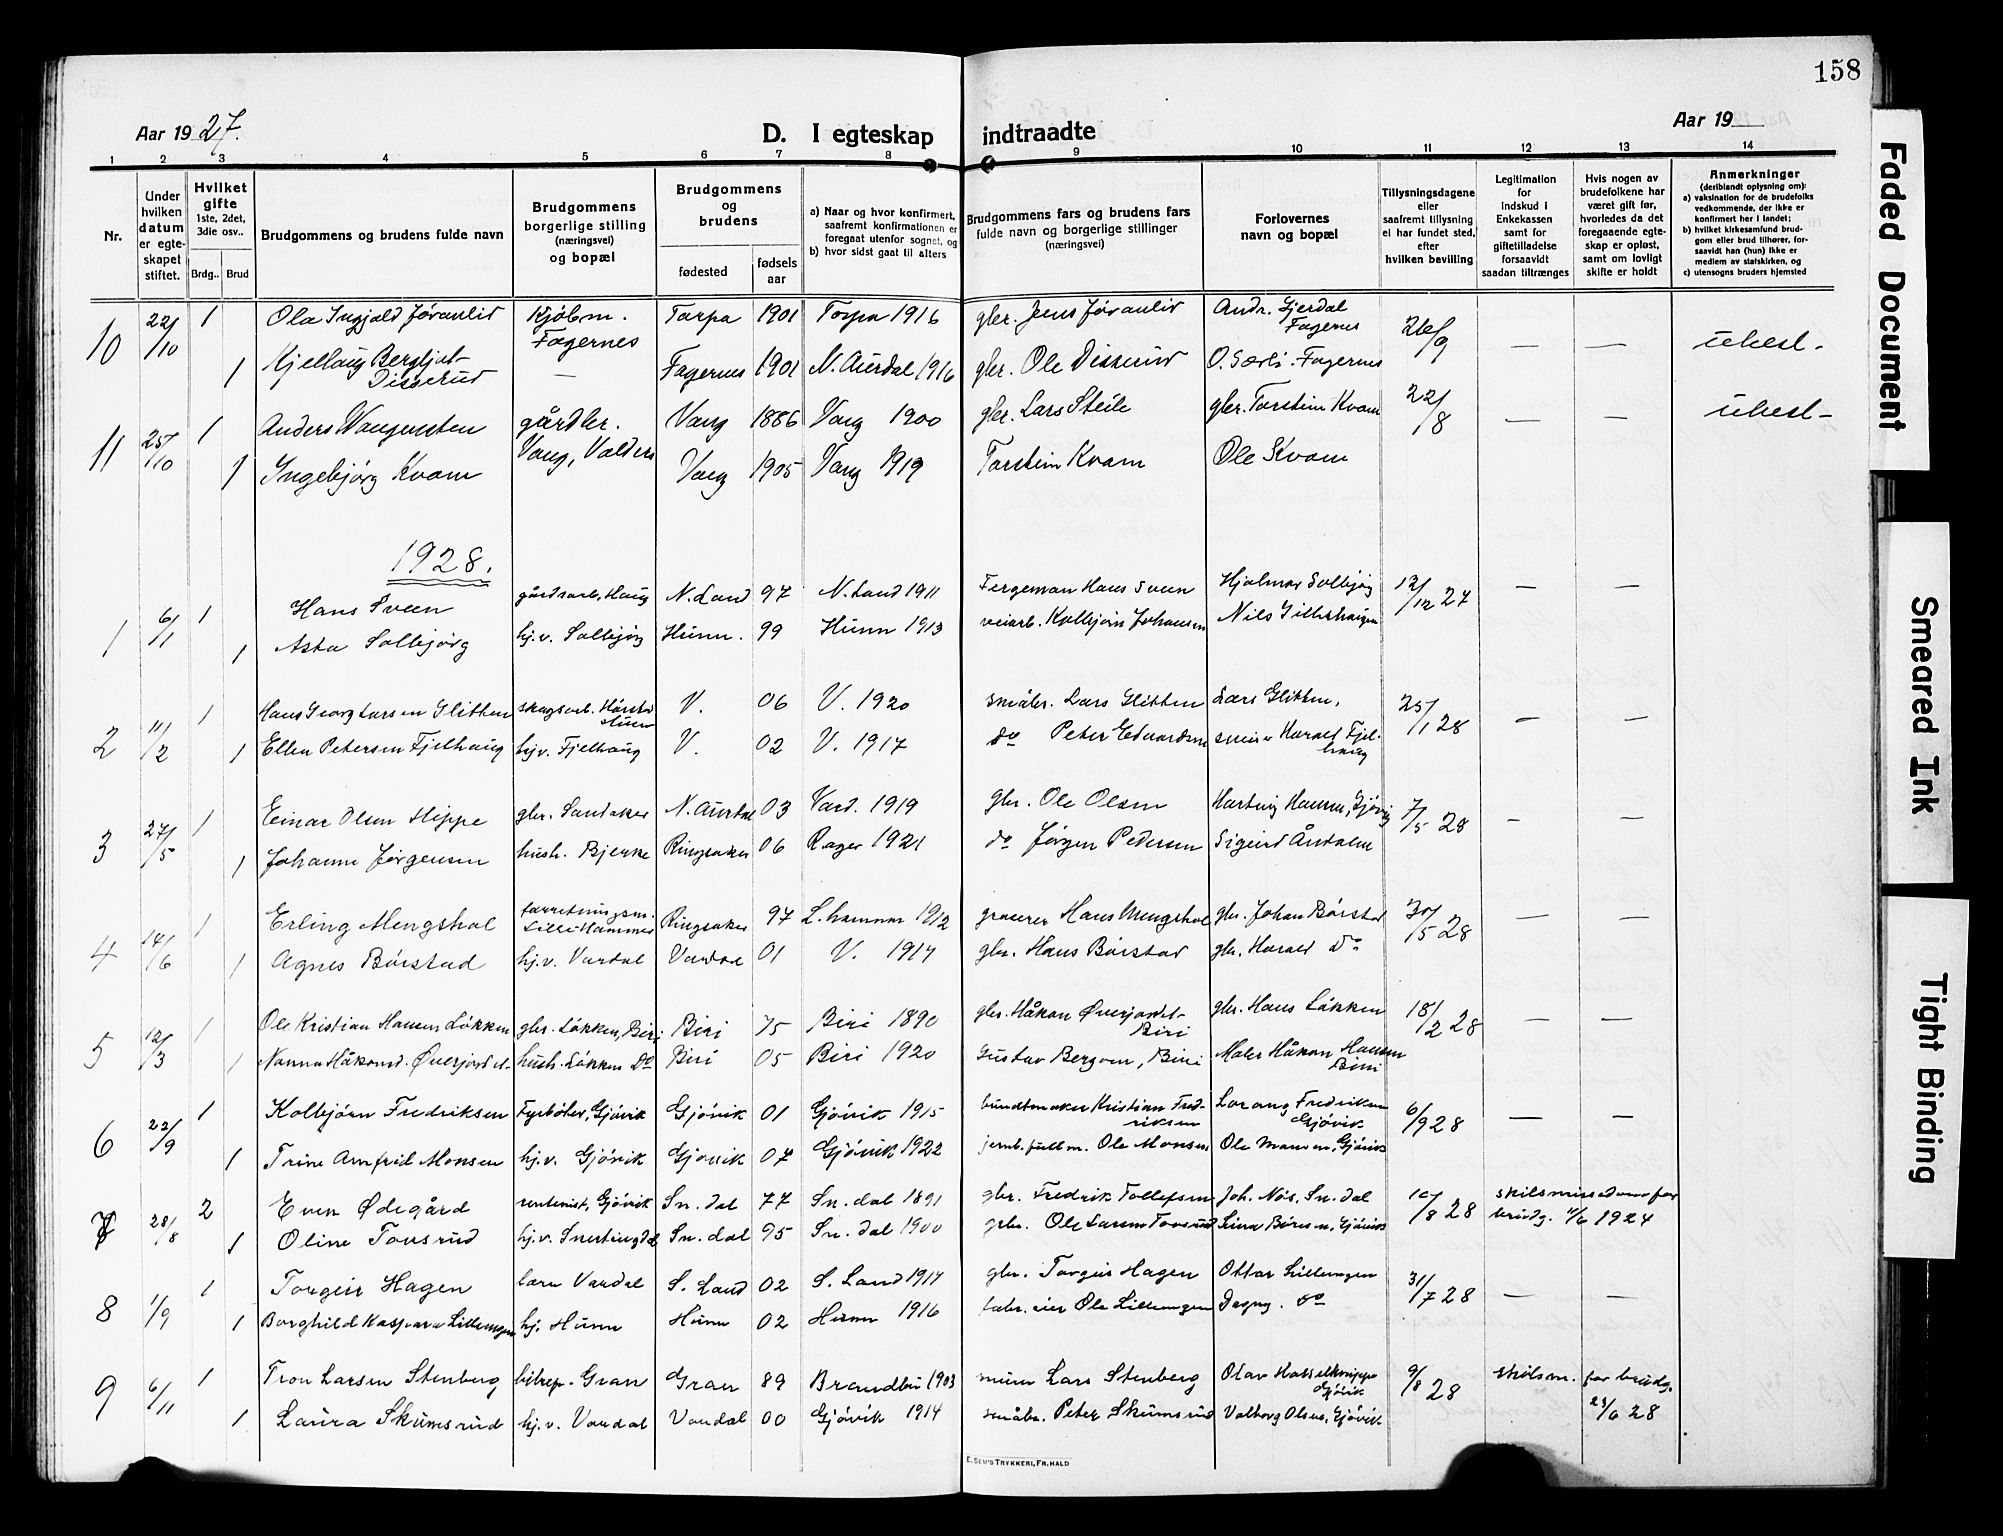 158
Aar 1927.
D. I egteskap indtraadte
Aar 19
1 2 3 4 5 6 7 8 9 10 11 12 13 14
Nr.
Under hvilken datum er egte-skapet stiftet.
Hvilket gifte 1ste, 2det, 3die osv..
Brdg.. Brud
Brudgommens og brudens fulde navn
Brudgommens borgerlige stilling (næringsvei) og bopæl
Brudgommens og brudens
fødested
fødsels aar
a) Naar og hvor konfirmert, saafremt konfirmationen er foregaat utenfor sognet, og
b) hvor sidst gaat til alters
Brudgommens fars og brudens fars fulde navn og borgerlige stillinger (næringsvei)
Forlovernes navn og bopæl
Tillysningsdagene eller saafremt tillysning ei har fundet sted, efter hvilken bevilling
Legitimation for indskud i Enkekassen samt for giftetilladelse forsaavidt saadan tiltrænges
Hvis nogen av brudefolkene har været gift før, hvorledes da det foregaaende egte-skap er opløst, samt om lovligt skifte er holdt
Anmerkninger
(deriblandt oplysning om):
a) vaksination for de brudefolks vedkommende, der ikke er konfirmert her i landet;
b) hvilket kirkesamfund brud-gom eller brud tilhører, for-saavidt han (hun) ikke er medlem av statskirken, og
c) utensogns bruders hjemsted
10 22/10 1 Ola Ingjald Jøranlid Kjøbm. Fagernes Torpa 1901 Torpa 1916 gbr. Jens Jøranlid Andr. Gjerdal Fagernes 26/9 — — ubest.
1 Kjellaug Bergljot Disserud — Fagernes 1901 N. Aurdal 1916 gbr. Ole Disserud O. Sæli. Fagernes
11 25/10 1 Anders Wangensten gårdbr. Vang, Valdres Vang 1886 Vang 1900 gbr. Lars Steile gbr. Torstein Kvam 22/8 — — ubest
1 Ingebjørg Kvam Vang 1905 Vang 1919 Torstein Kvam Ole Kvam
1928.
1 6/1 1 Hans Sveen gårdsarb. Haug N. Land 97 N. Land 1911 Fergeman Hans Sveen Hjalmar Solbjørg 12/12 27 — —
1 Asta Solbjørg hj.v. Solbjørg Hunn. 99 Hunn 1913 veiarb. Kolbjørn Johansen Nils
2 11/2 1 Hans Georg Larsen Glitten skogsarb. V. 06 V. 1920 småbr. Lars Glitten Lars Glitten, 25/1 28 — —
1 Ellen Petersen Fjelhaug hj.v. Fjelhaug V. 02 V. 1917 do Peter Edvardsen Harald Fjelhaug
3 27/5 1 Einar Olsen Hippe gbr. Sandaker N. Aurdal 03 Vard. 1919 gbr. Ole Olsen Hartvig Hansen, Gjøvig 7/5 28 — —
1 Johanne Jørgensen hush. Bjerke Ringsaker 06 R.ager 1921 do Jørgen Pedersen Sigurd Åndalen
4 14/6 1 Erling Mengshol forretningsm. Lillehammer Ringsaker 97 L.hammer 1912 grosserer Hans Mengshol gbr. Johan Børstad 30/5 28 — —
1 Agnes Børstad hj.v. Vardal Vardal 01 V. 1917 gbr. Hans Børstad gbr. Harald Do
5 12/3 1 Ole Kristian Hansen Løkken gbr. Løkken, Biri Biri 75 Biri 1890 gbr. Håkon Øverjordet Biri gbr. Hans Løkken 18/2 28 — —
1 Nanna Håkonsd. Øverjordet hush. Løkken Do Biri 05 Biri 1920 Gustav Bergom, Biri Maler Håkon Hansen Biri
6 22/9 1 Kolbjørn Fredriksen Fyrbøter, Gjøvik Gjøvik 01 Gjøvik 1915 bundtmaker Kristian Fredriksen Lorang Fredriksen Gjøvik 6/9 28 — —
1 Trine Arnfrid Monsen hj.v. Gjøvik Gjøvik 07 Gjøvik 1922 jernb.fullm. Ole Monsen Ole Monsen, Gjøvik
7 28/8 2 Even Ødegård rentenist, Gjøvik Sn. dal 77 Sn. dal 1891 gbr. Fredrik Tollefsen Joh. Nøs, Sn. dal 10/8 28 skilsmissedom for brudg. 4/6 1924
1 Oline Tovsrud hj.v. Snertingdal Sn. dal 95 Sn. dal 1900 gbr. Ole Larsen Tovsrud Lina Børesen, Gjøvik
8 1/9 1 Torgeir Hagen lærer Vardal S. Land 02 S. Land 1917 gbr. Torgeir Hagen Ottar Lilleengen 31/7 28 — —
1 Borghild Kaspara Lilleengen hj. Hunn Hunn 02 Hunn 1916 fabr. eier Ole Lilleengen Dagny. do
9 6/11 1 Tron Larsen Stenberg bilrep. Gran Gran 89 Brandbu 1903 murer Lars Stenberg Olav Hasselknippe Gjøvik 9/8 28 skilsm. for brudg. 23/6 28
1 Laura Skumsrud hj.v. Vardal Vardal 00 Gjøvik 1914 småbr. Peter Skumsrud Valborg Olsen, Gjøvik
E. SEM'S TRYKKERI, FR.HALD
Faded Document
Smeared Ink
Tight Binding